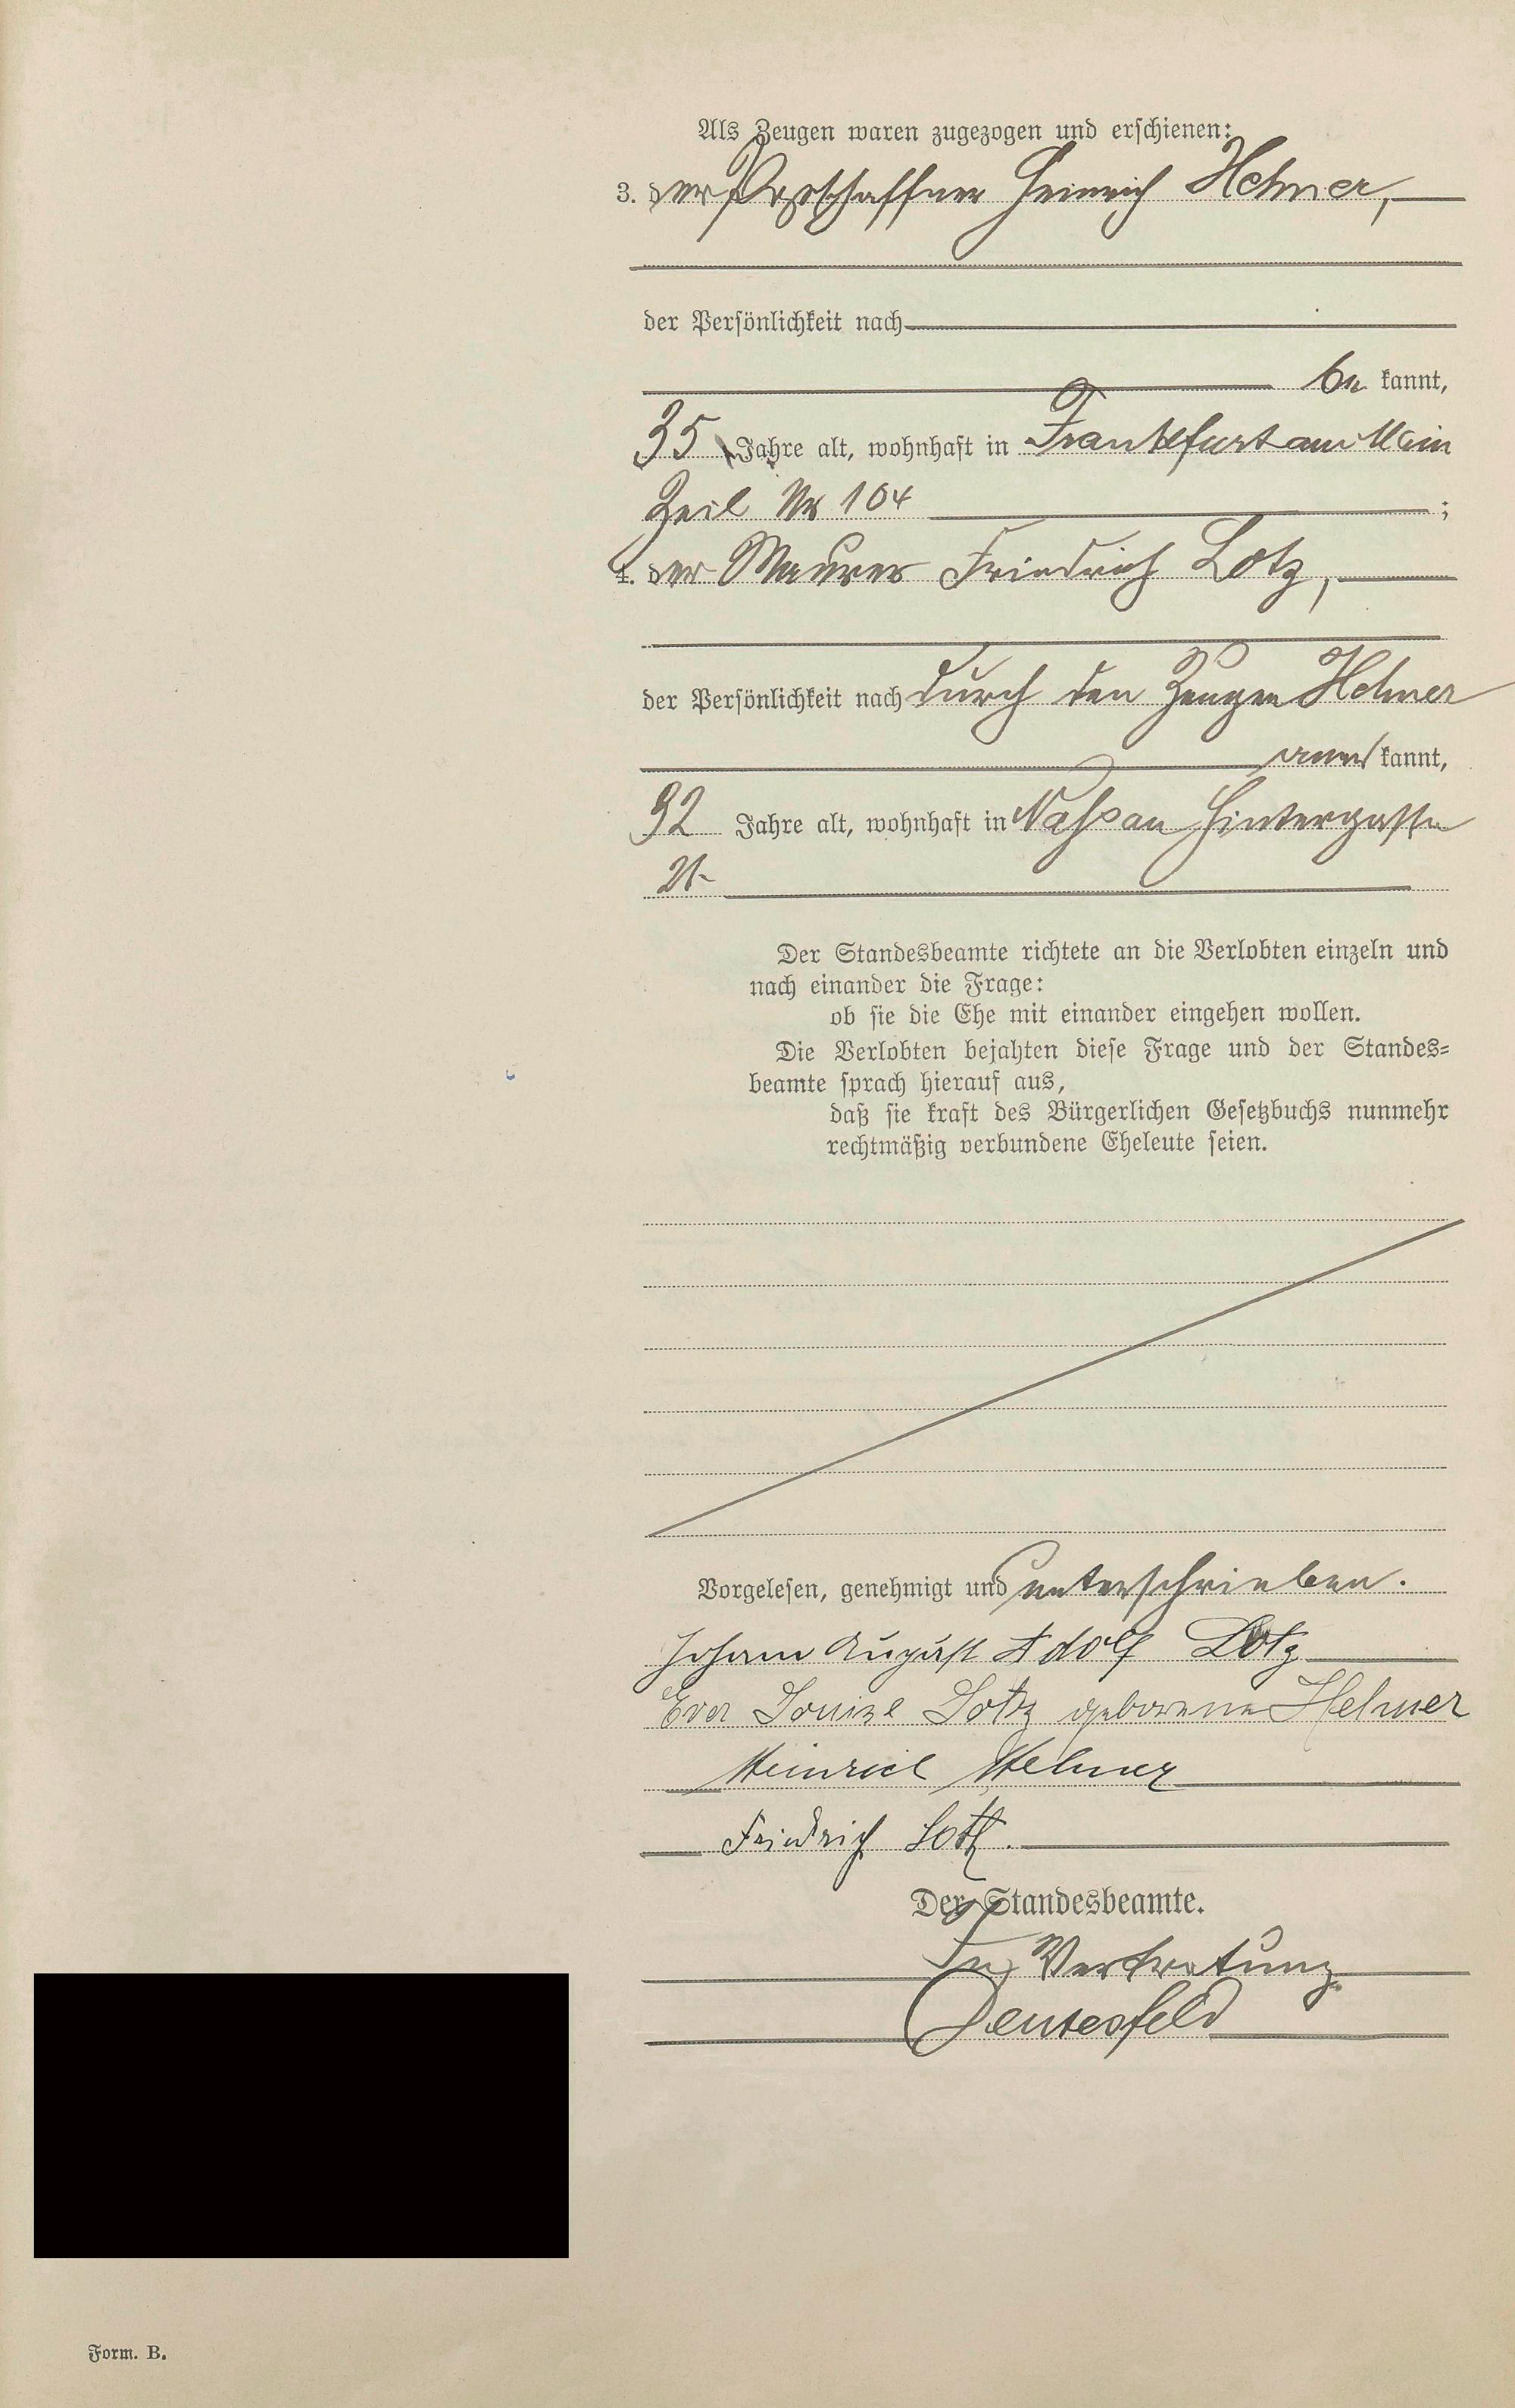 Als Zeugen waren zugezogen und erschienen:
3. der Postschaffner Heinrich Helmer,
der Persönlichkeit nach
be kannt,
35 Jahre alt, wohnhaft in Frankfurt am Main
Zeil Nr 104 ;
4. der Maurer Friedrich Lotz,
der Persönlichkeit nach durch den Zeugen Helmer
aner kannt,
32 Jahre alt, wohnhaft in Nassau Hintergasse
21
Der Standesbeamte richtete an die Verlobten einzeln und
nach einander die Frage:
ob sie die Ehe mit einander eingehen wollen.
Die Verlobten bejahten diese Frage und der Standes=
beamte sprach hierauf aus,
daß sie kraft des Bürgerlichen Gesetzbuchs nunmehr
rechtmäßig verbundene Eheleute seien.
Vorgelesen, genehmigt und unterschrieben.
Johann August Adolf Lotz
Eva Louise Lotz geborene Helmer
Heinrich Helmer
Friedrich Lotz.
Der Standesbeamte.
In Vertretung